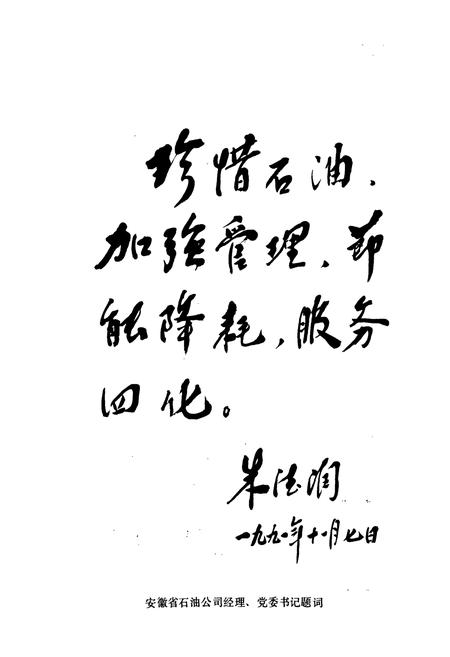 珍惜石油、
加強管理、节
能降耗,服务
四化。
朱德润
一九九一年十一月七日
安徽省石油公司经理、党委书记题词